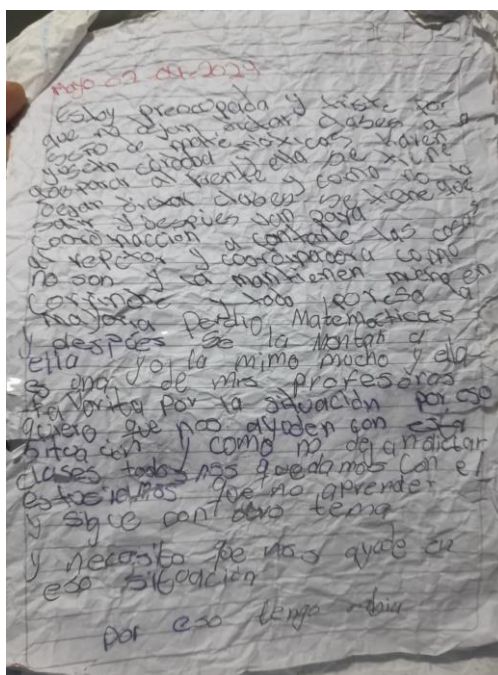 mayo 02 del 2024
Estoy preocupada y triste por
que no dejan dictar clases a
de matemáticas Karen
Yoselin y ella se tiene
que parar al frente y como no la
dejan dictar clases se tiene que
salir y después van para
coordinacción a contarle las cosas
al repctor y coordinacora como
no son y la mantienen
corrinche y todo por eso la
mayoria perdio Matematicas
y despues se la montan a
ella yo la mimo mucho y ella
es una de mis profesoras
favorita por la situación por eso
quiero que nos ayuden con esta
situación y como no dejan dictar
clases todos nos quedamos con el
que no aprender
y sigue con otro tema
y necesito que nos ayude en
eso situación
por eso tengo rabia